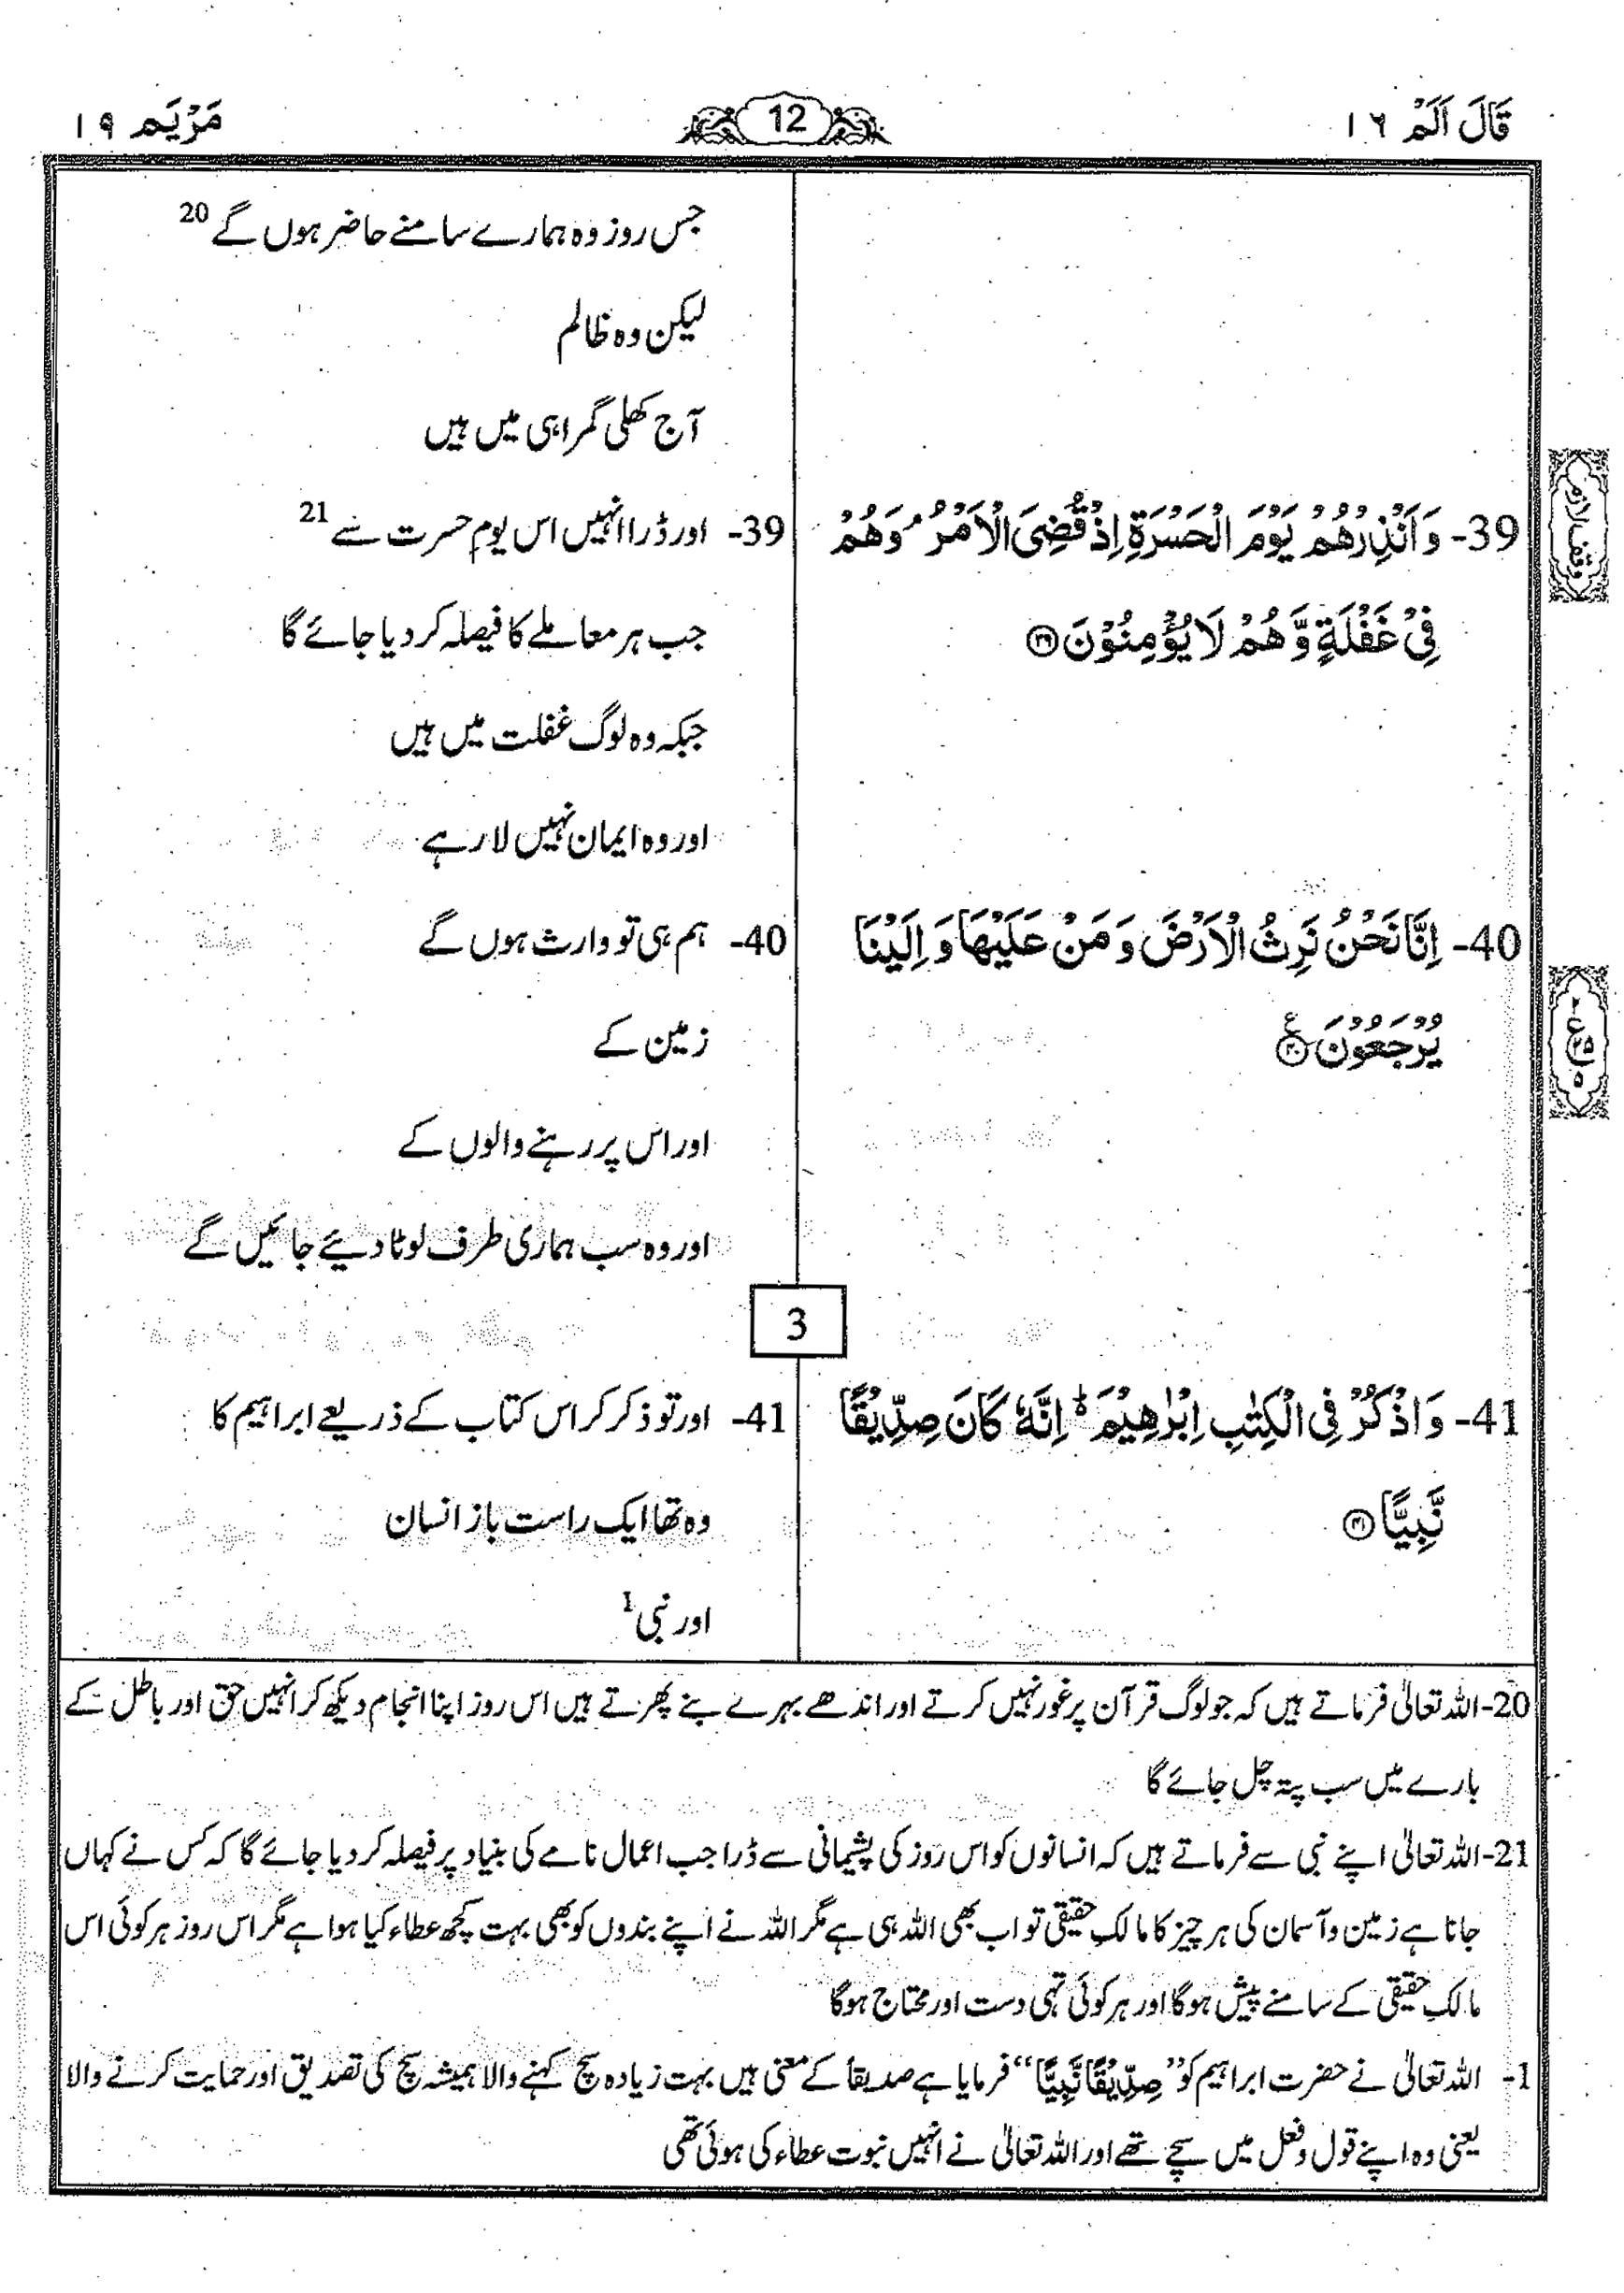 قَالَ اَلَمْ ١٦
12
مَرْيَم ١٩
جس روز وہ ہمارے سامنے حاضر ہوں گے 20
لیکن وہ ظالم
آج کھلی گمراہی میں ہیں
39- وَ اَنْذِرْهُمْ يَوْمَ الْحَسْرَةِ اِذْ قُضِيَ الْاَمْرُ ۘ وَهُمْ
فِيْ غَفْلَةٍ وَّ هُمْ لَا يُؤْمِنُوْنَ ۝۳۹
39- اور ڈرا انہیں اس یومِ حسرت سے 21
جب ہر معاملے کا فیصلہ کر دیا جائے گا
جبکہ وہ لوگ غفلت میں ہیں
اور وہ ایمان نہیں لا رہے
وقف لازم
40- اِنَّا نَحْنُ نَرِثُ الْاَرْضَ وَ مَنْ عَلَيْهَا وَ اِلَيْنَا
يُرْجَعُوْنَ ۝۴۰ ع
40- ہم ہی تو وارث ہوں گے
زمین کے
اور اس پر رہنے والوں کے
اور وہ سب ہماری طرف لوٹا دیئے جائیں گے
۲
ع
۲۵
۵
3
41- وَ اذْكُرْ فِي الْكِتٰبِ اِبْرٰهِيْمَ ؕ اِنَّهٗ كَانَ صِدِّيْقًا
نَّبِيًّا ۝۴۱
41- اور تو ذکر کر اس کتاب کے ذریعے ابراہیم کا
وہ تھا ایک راست باز انسان
اور نبی 1
20-اللہ تعالیٰ فرماتے ہیں کہ جو لوگ قرآن پر غور نہیں کرتے اور اندھے بہرے بنے پھرتے ہیں اس روز اپنا انجام دیکھ کر انہیں حق اور باطل کے
بارے میں سب پتہ چل جائے گا
21-اللہ تعالیٰ اپنے نبی سے فرماتے ہیں کہ انسانوں کو اس روز کی پشیمانی سے ڈرا جب اعمال نامے کی بنیاد پر فیصلہ کر دیا جائے گا کہ کس نے کہاں
جانا ہے زمین و آسمان کی ہر چیز کا مالکِ حقیقی تو اب بھی اللہ ہی ہے مگر اللہ نے اپنے بندوں کو بھی بہت کچھ عطاء کیا ہوا ہے مگر اس روز ہر کوئی اس
مالکِ حقیقی کے سامنے پیش ہوگا اور ہر کوئی تہی دست اور محتاج ہوگا
1- اللہ تعالیٰ نے حضرت ابراہیم کو ”صِدِّيْقًا نَّبِيًّا“ فرمایا ہے صدیقاً کے معنی ہیں بہت زیادہ سچ کہنے والا ہمیشہ سچ کی تصدیق اور حمایت کرنے والا
یعنی وہ اپنے قول و فعل میں سچے تھے اور اللہ تعالیٰ نے انہیں نبوت عطاء کی ہوئی تھی